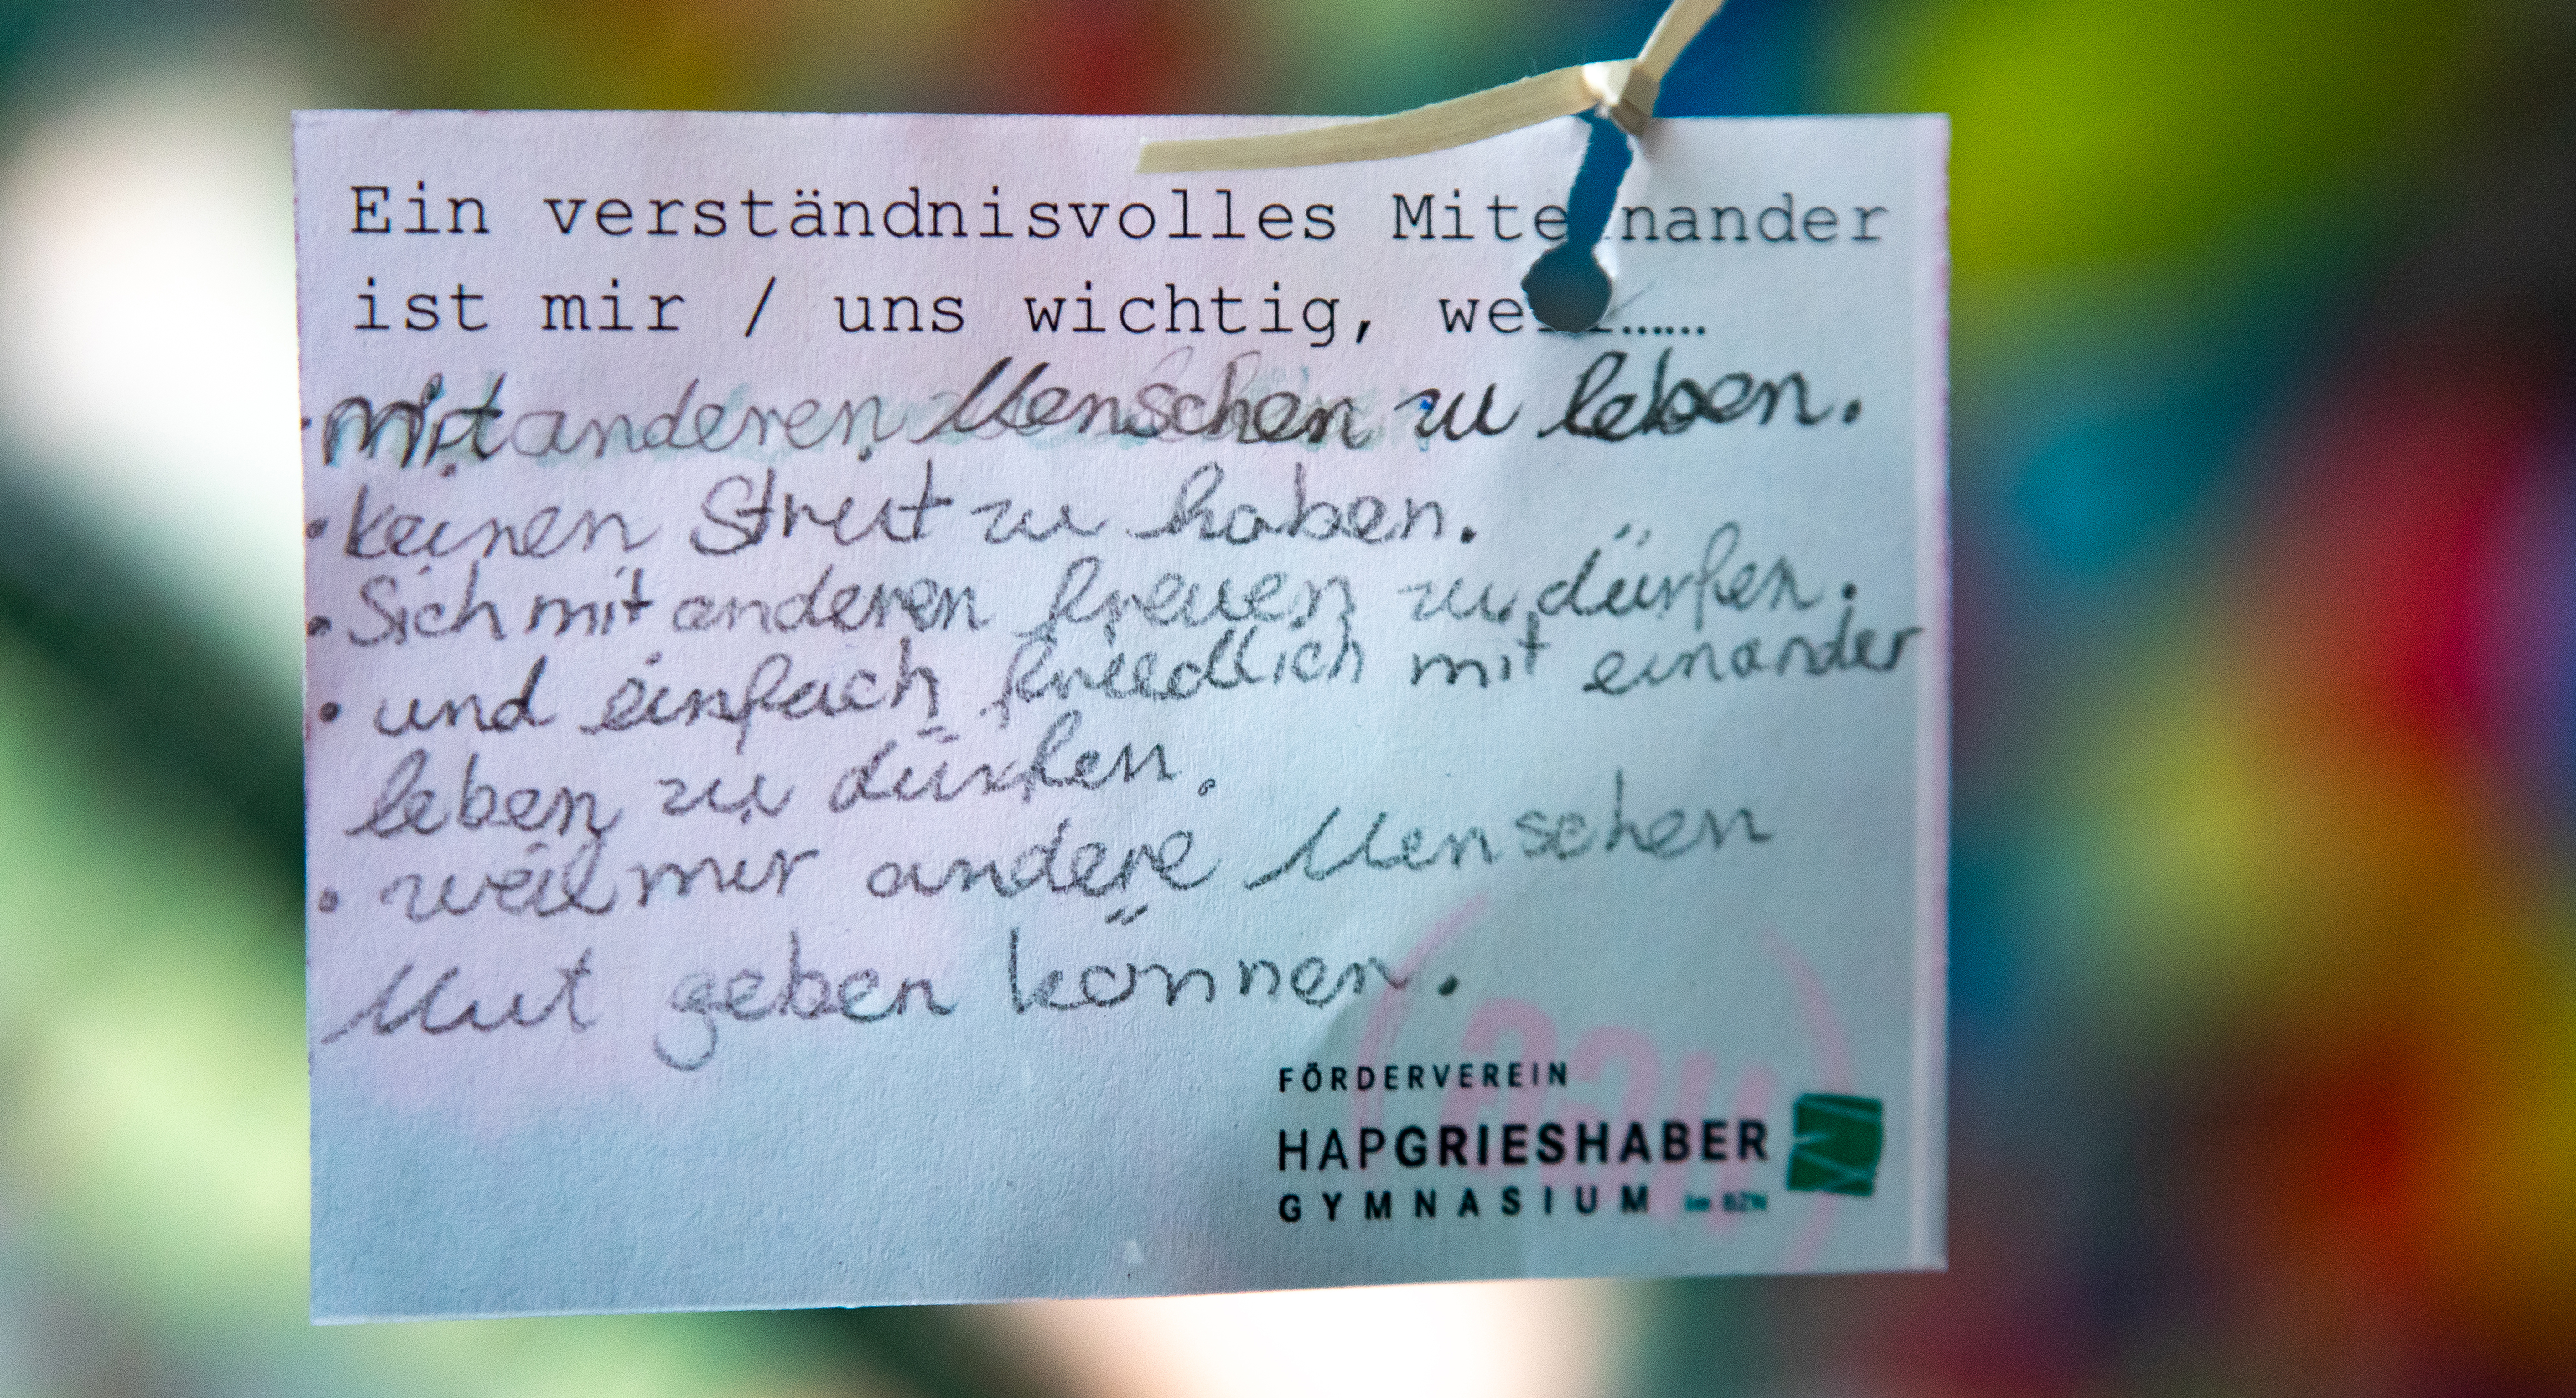 Ein verständnisvolles Miteinander
ist mir / uns wichtig, weil……
·mit anderen Menschen zu leben.
·keinen Streit zu haben.
·Sich mit anderen freuen zu dürfen.
·und einfach friedlich mit einander
leben zu dürfen.
·weil mir andere Menschen
Mut geben können.
FÖRDERVEREIN
HAPGRIESHABER
GYMNASIUM im BZN